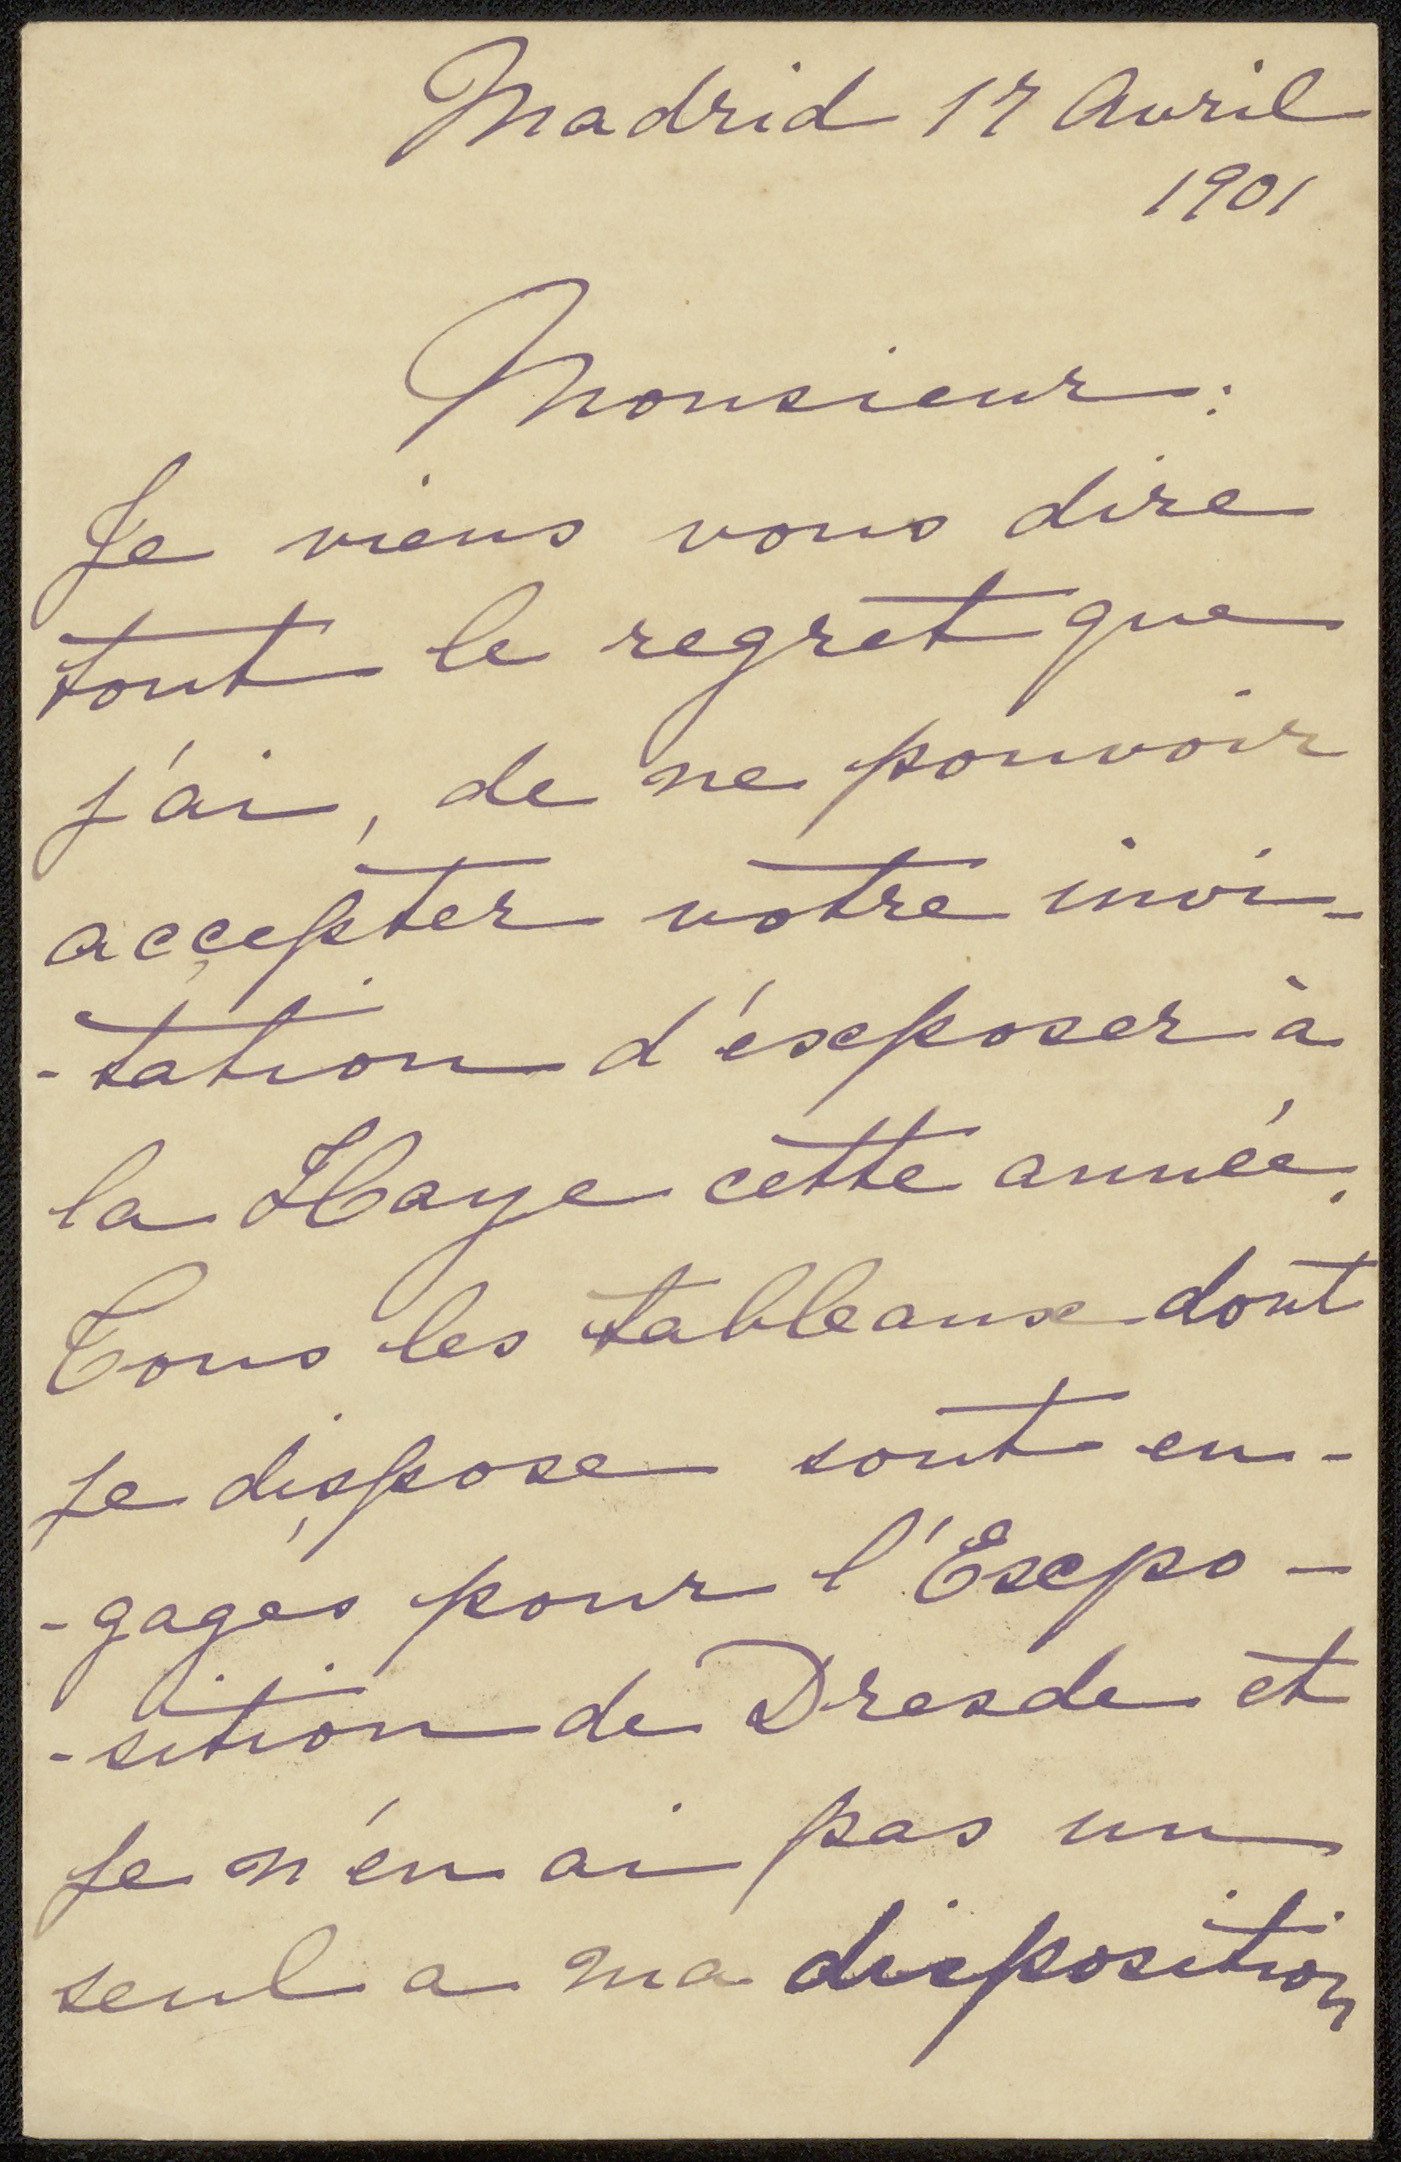 Madrid 17 Avril
1901
Monsieur:
Je viens vous dire
tout le regret que
j'ai, de ne pouvoir
accepter votre invi-
-tation d'éxposer à
la Haye cette année.
Tous les tableaux dont
je dispose sont en-
-gagés pour l'Expo-
-sition de Dresde et
je n'én ai pas un
seul a ma disposition